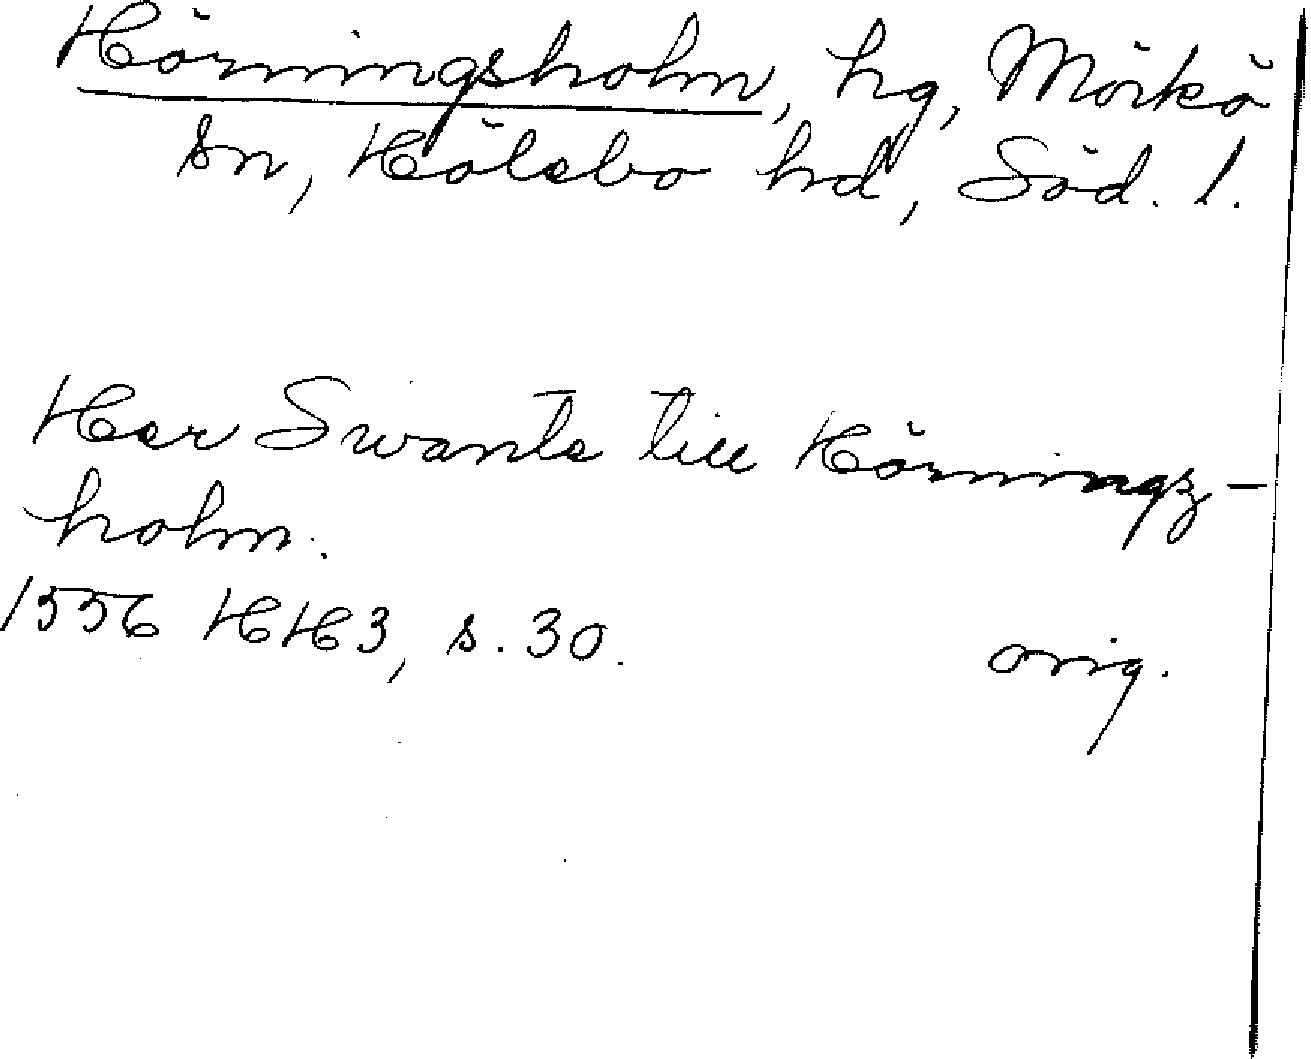 Hörningsholm, hg, Mörkö
sn, Hölebo hd, Söd. l.
Her Swante till Hörningz-
holm.
1556 HH3, s. 30.
orig.